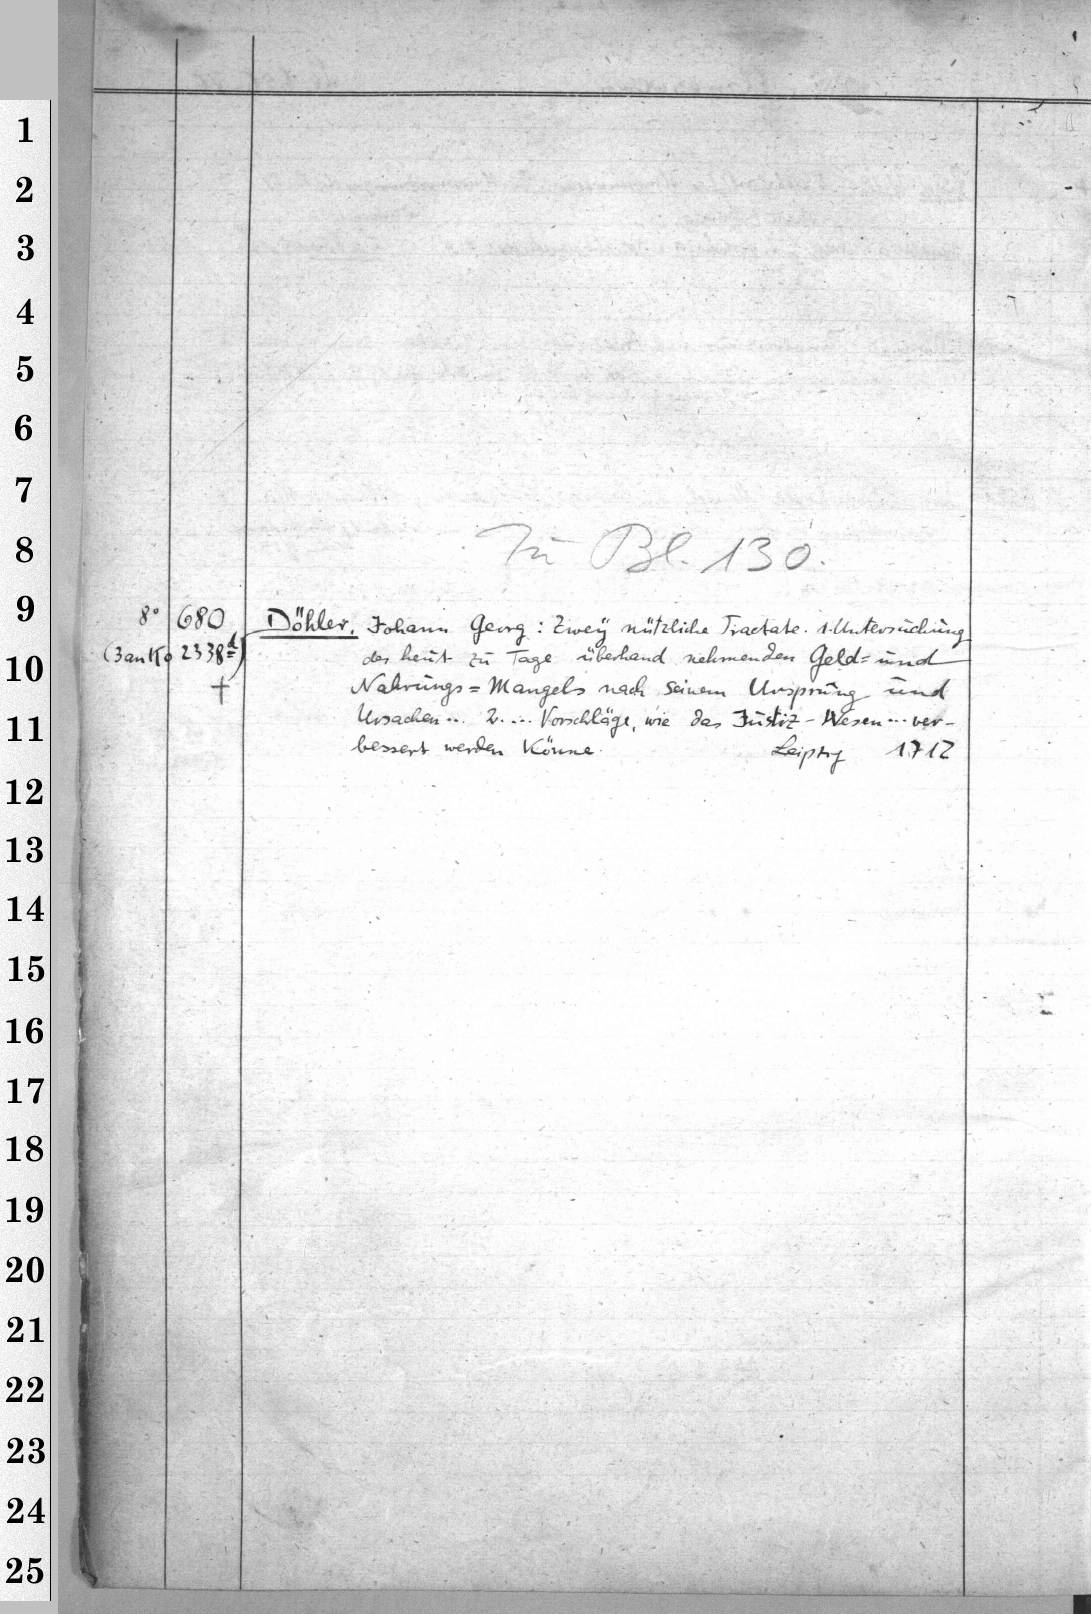 1
2
3
4
5
6
7
8
Zu Bl. 130.
9
8° 680 Döhler, Johann Georg: Zweÿ nützliche Tractate. 1. Untersuchung
10
(3 an Ko 2338 d) des heut zu Tage überhand nehmenden Geld= und
† Nahrungs= Mangels nach seinem Ursprung und
11
Ursachen... 2.... Vorschläge, wie das Justiz-Wesen... ver-
bessert werden könne. Leipzig 1712
12
13
14
15
16
17
18
19
20
21
22
23
24
25